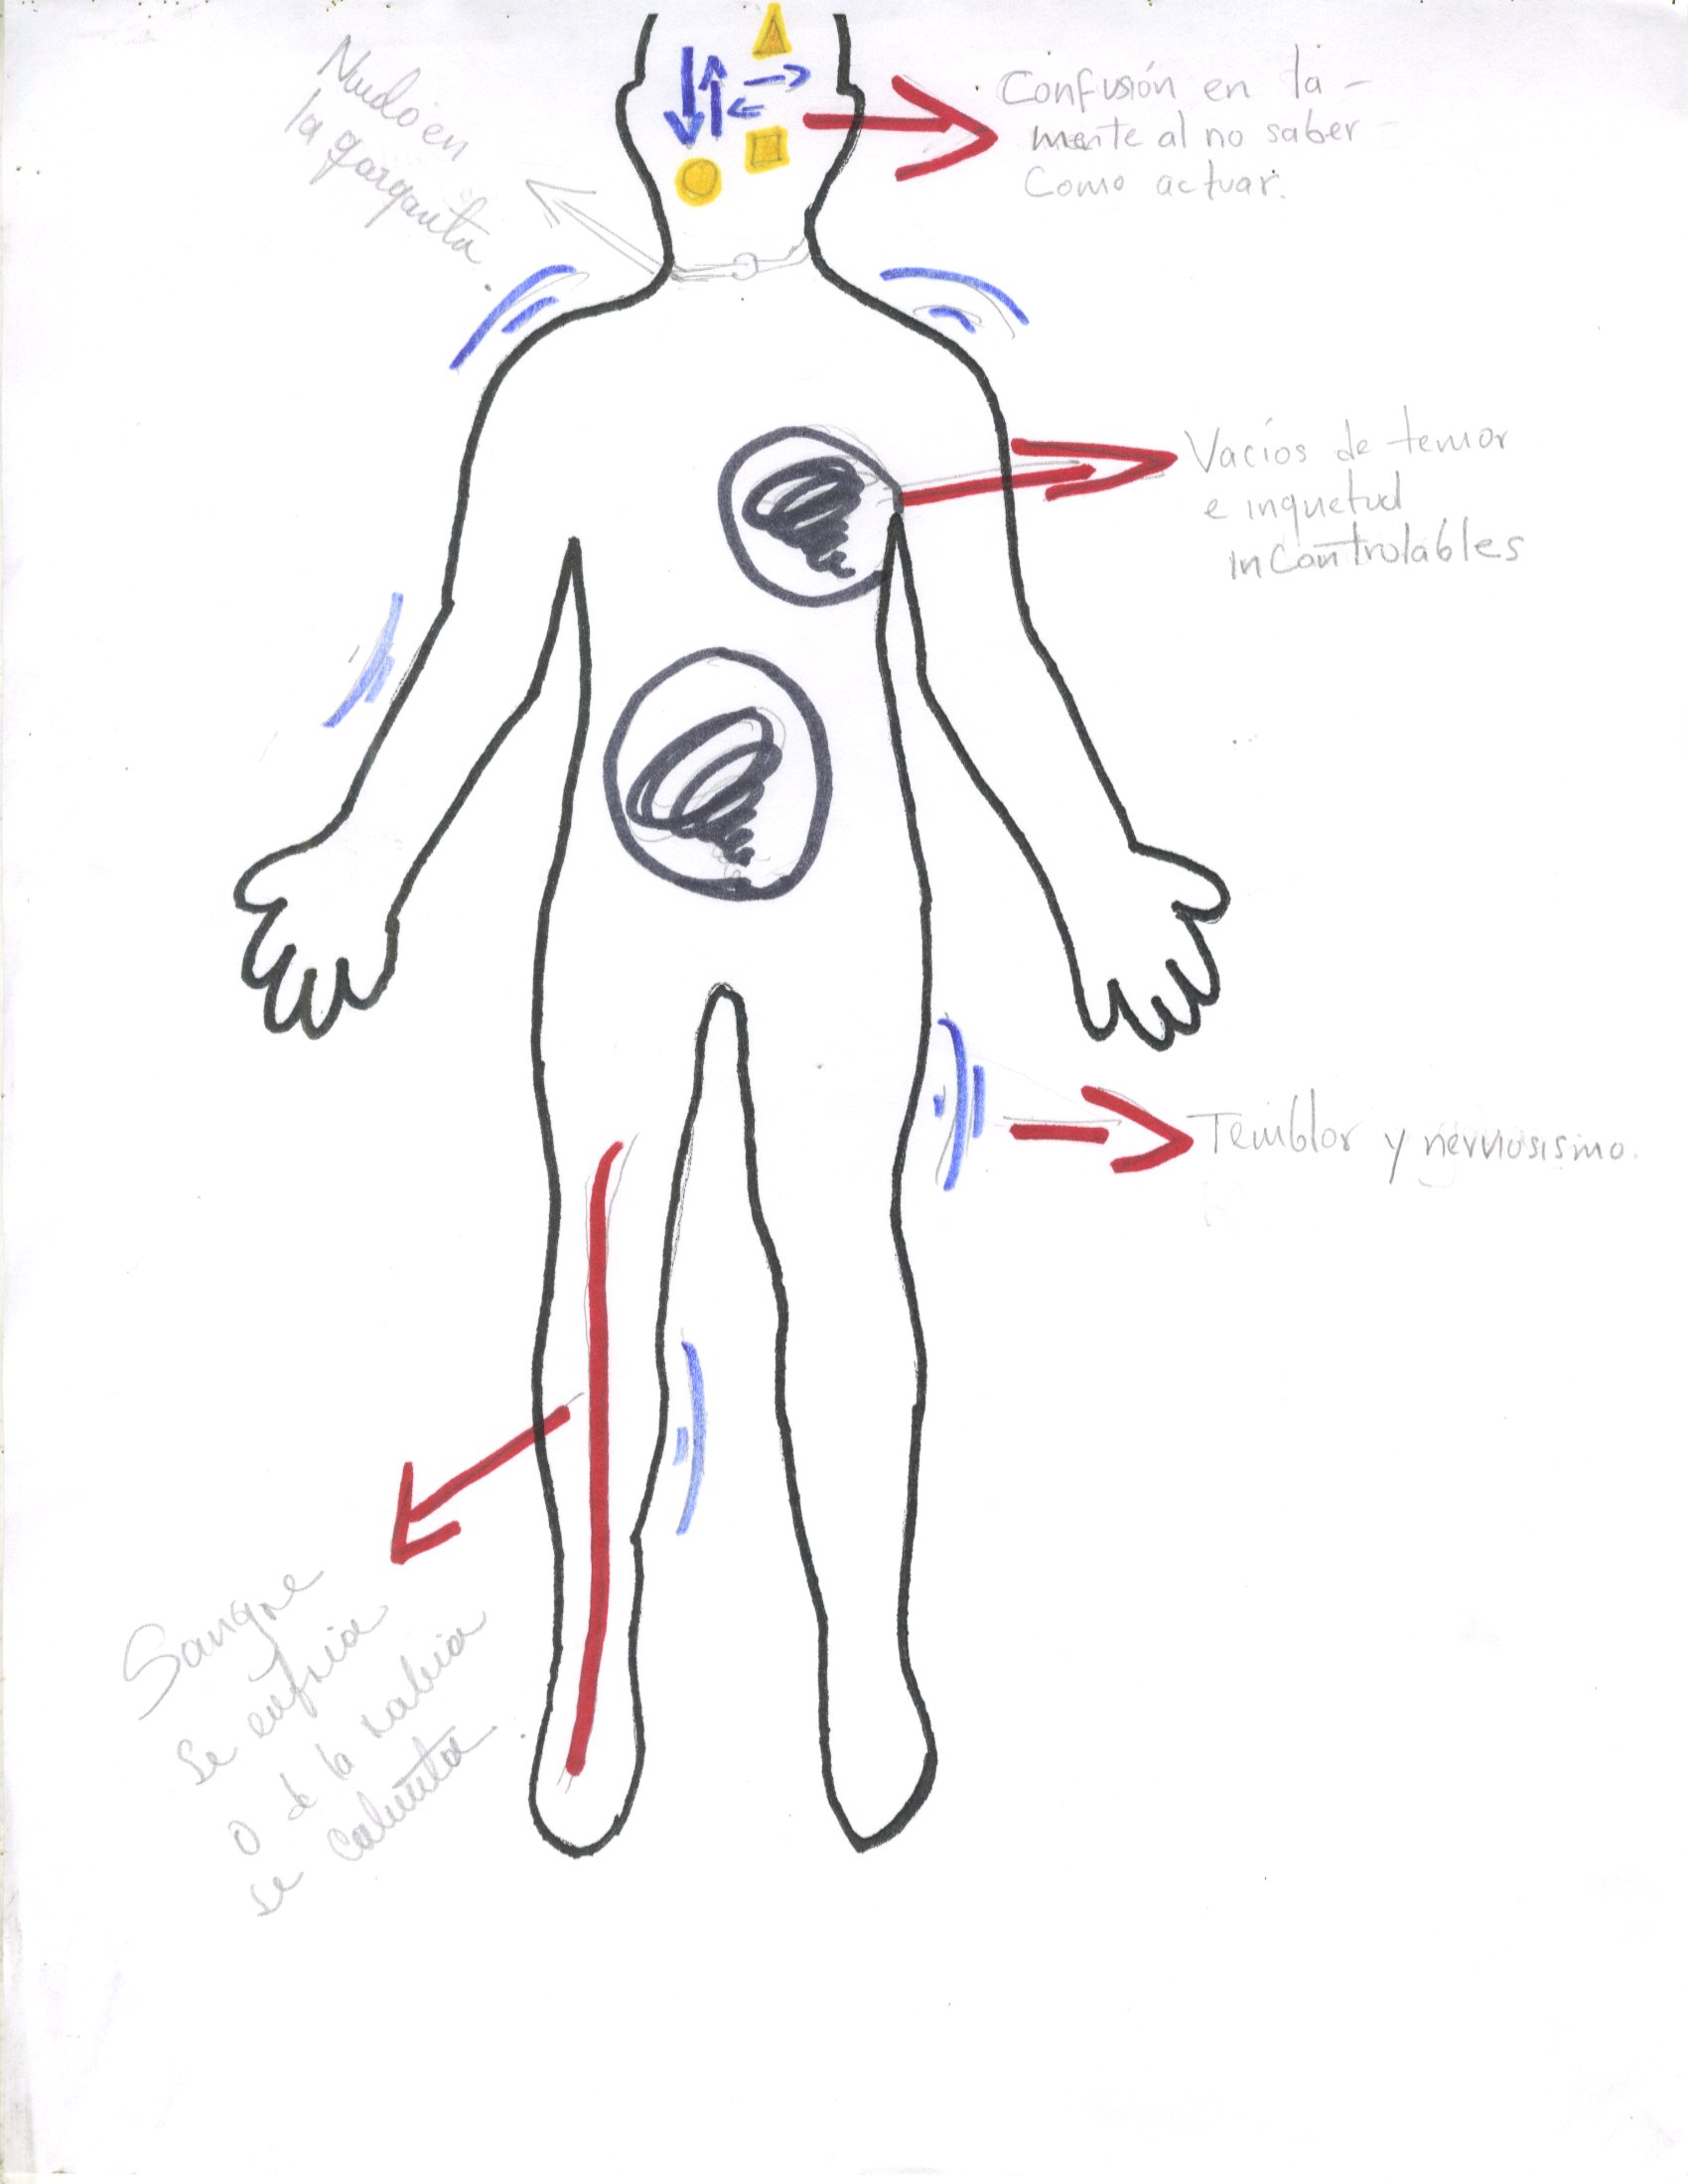 Nudo en
la garganta.
Confusión en la -
mente al no saber -
Como actuar.
Vacíos de temor
e inquetud
incontrolables
Temblor y nerviosismo.
Sangre
se enfria
o de la rabia
se calienta.